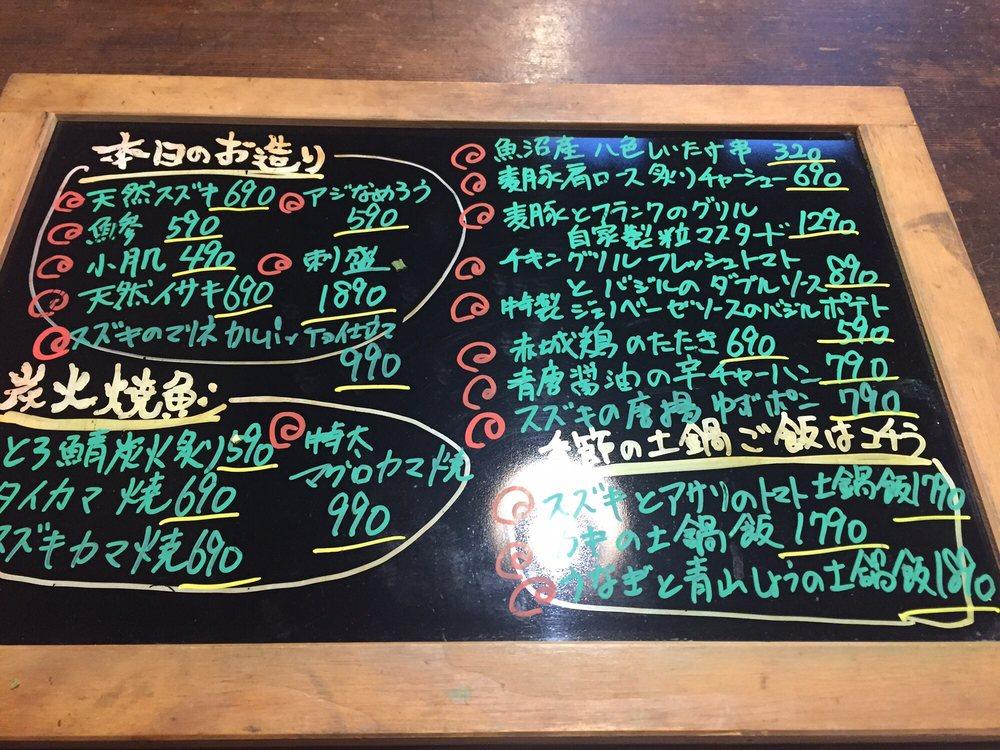 本日のお造り
天然スズキ 690
アジなめろう
590
590
小肌 490
刺盛
1890
天然イサキ 690
スズキのマリネ カルパッチョ仕立
990
炭火焼魚
とろ鯖炭火炙り 590
タイカマ焼 690
スズキカマ焼 690
特大
マグロカマ焼
990
魚沼産 八色しいたけ串 320
麦豚肩ロース炙りチャーシュー 690
麦豚とフランクのグリル
自家製粒マスタード 1290
チキングリル フレッシュトマト
とバジルのダブルソース 890
特製ジェノベーゼソースのバジルポテト
590
赤城鶏のたたき 690
青唐醤油の辛チャーハン 790
スズキの唐揚 ゆずポン 790
季節の土鍋ご飯はコチラ
スズキとアサリのトマト土鍋飯 1790
カキの土鍋飯 1790
うなぎと青山しょうの土鍋飯 1890